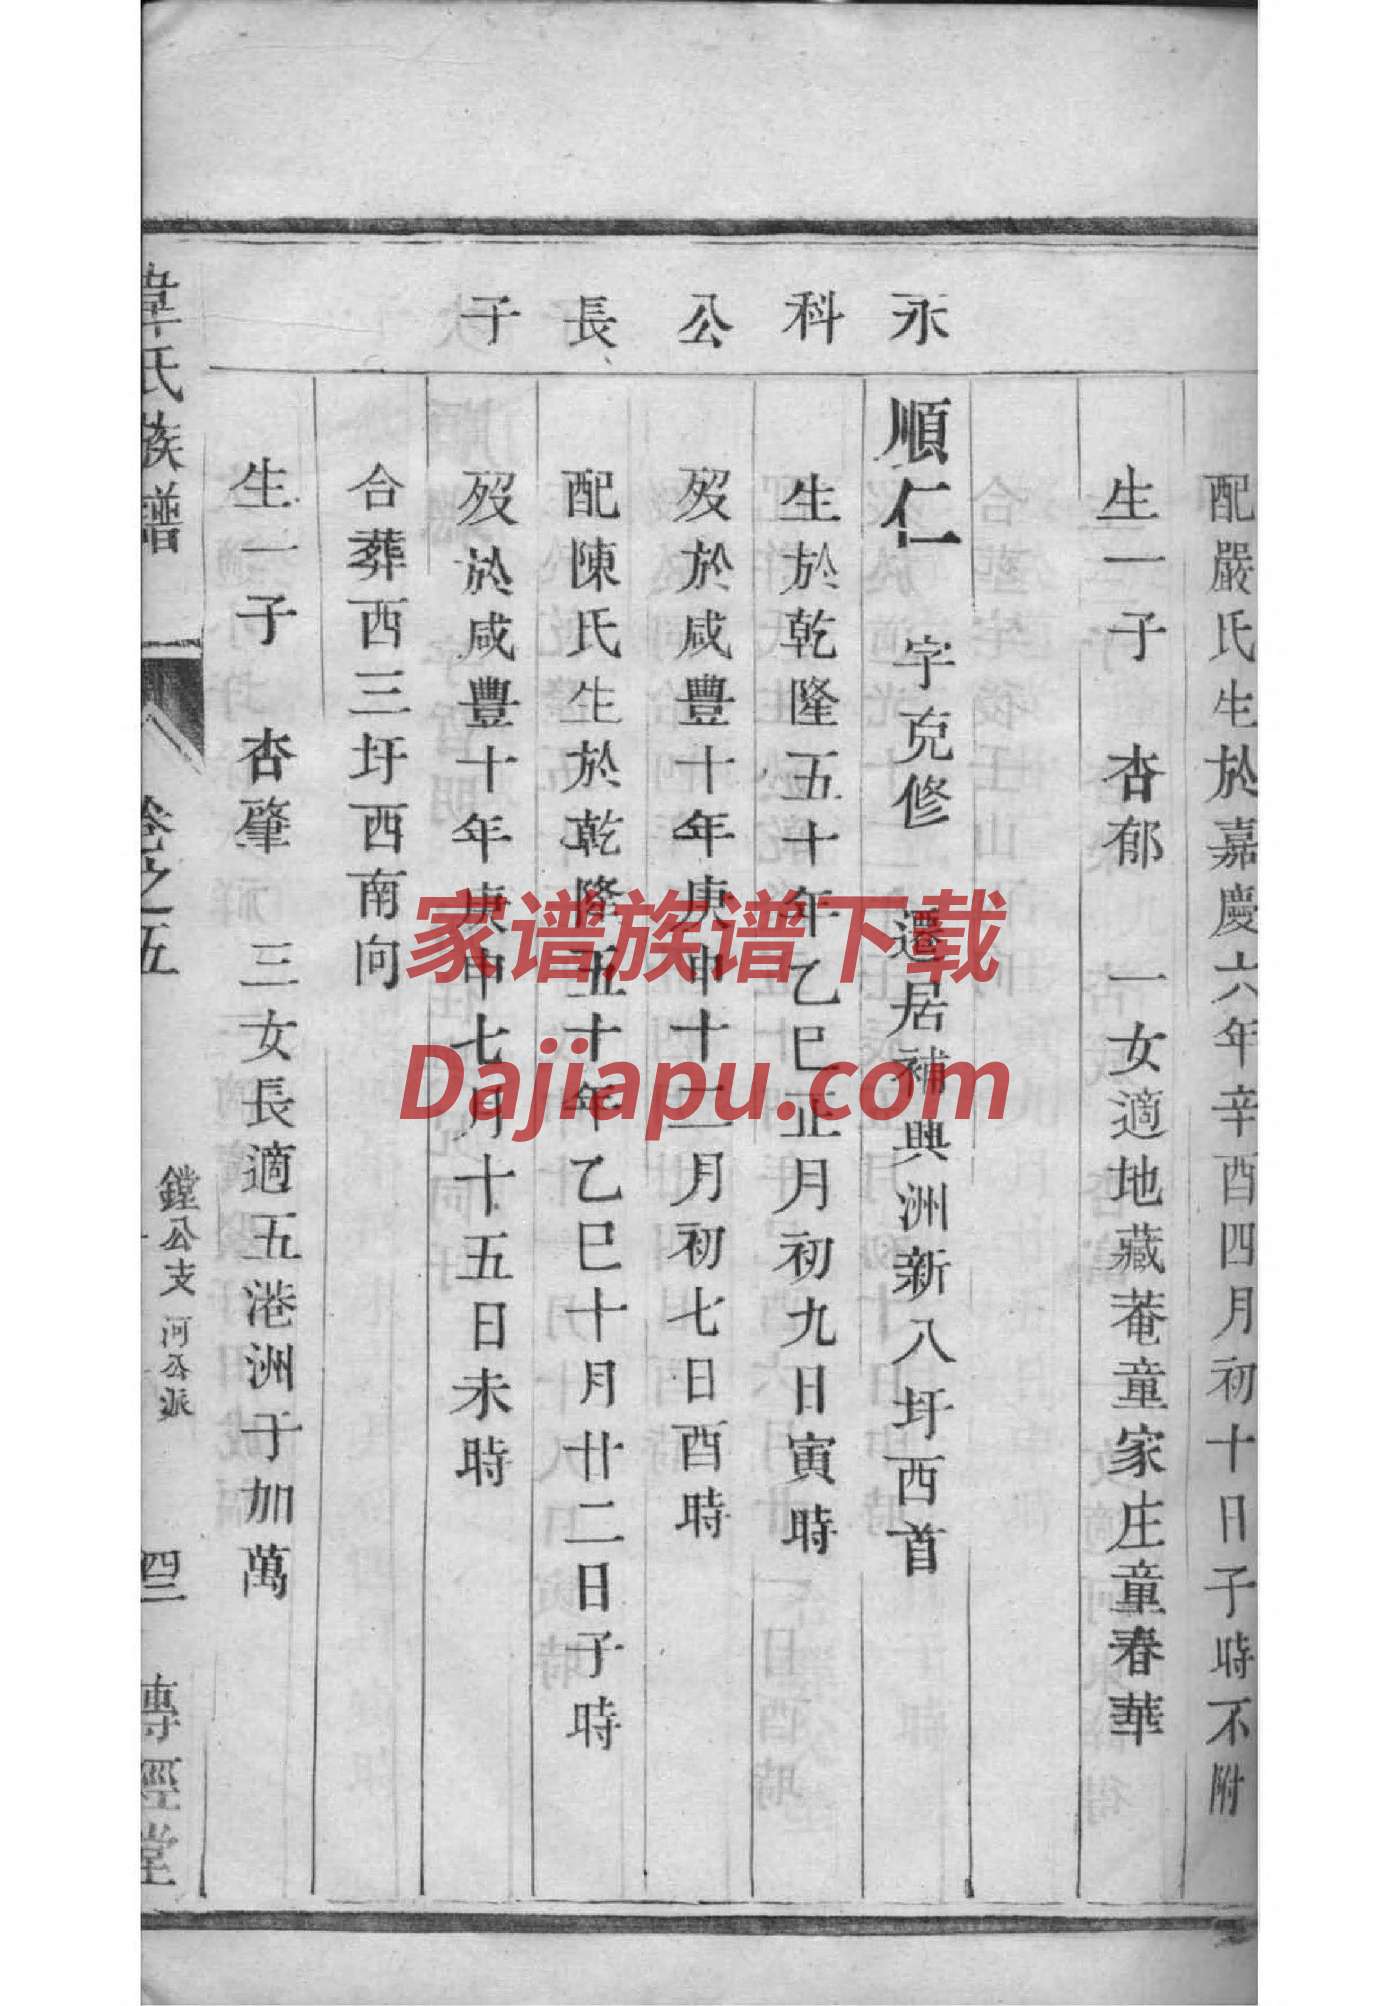 配嚴氏生於嘉慶六年辛酉四月初十日子時不附
生一子 杏郁 一女適地藏菴童家庄童春華
永科公長子
順仁 字克修 遷居補興洲新八圩西首
生於乾隆五十年乙巳正月初九日寅時
歿於咸豐十年庚申十二月初七日酉時
配陳氏生於乾隆五十年乙巳十月廿二日子時
歿於咸豐十年庚申七月十五日未時
合葬西三圩西南向
生一子 杏肇 三女長適五港洲于加萬
韋氏族譜 卷之五 鏜公支 河公派 四二 傳經堂
家谱族谱下载
Dajiapu.com